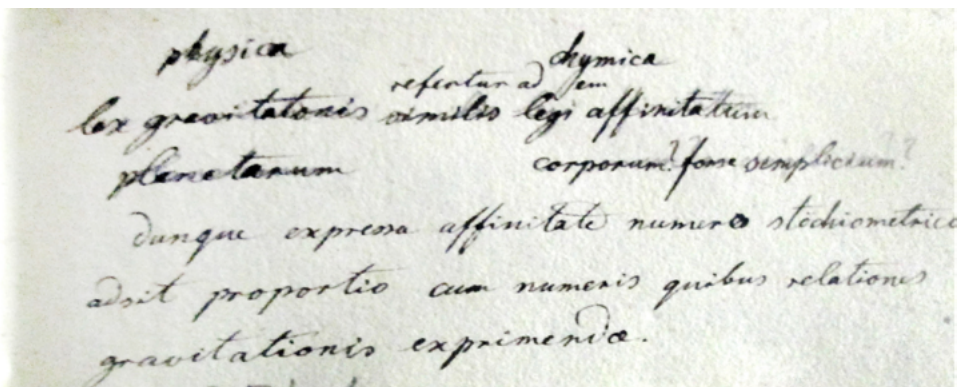 physica chymica
refertur ad em
lex gravitationis similis legi affinitatum
planetarum corporum? forse simplicium?
dunque expressa affinitate numero stöchiometrico
adsit proportio cum numeris quibus relationes
gravitationis exprimendæ.